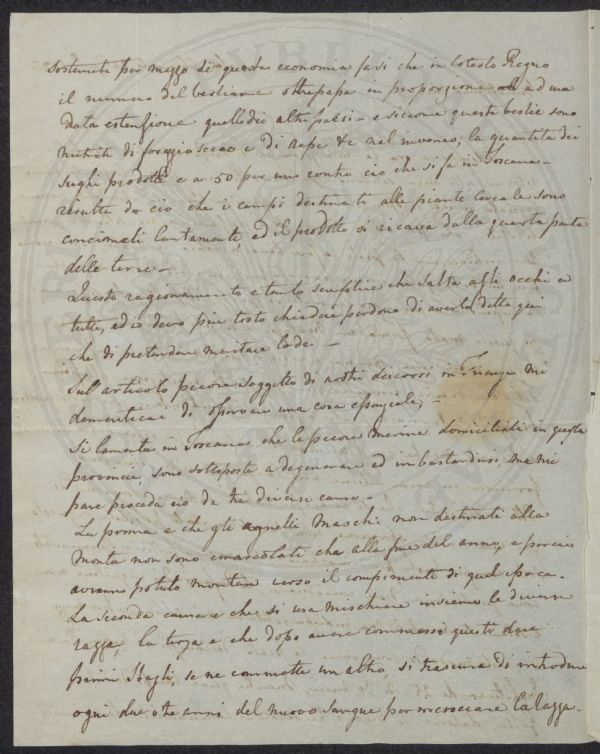 sostenuti per mezzo di questa economia fa si che in cotesto Regno
il numero del bestiame oltrepapa in proporzione ad una
data estensione quello di altri paesi - e siccome queste bestie sono
nutriti di foraggio secco e di rape &c nel inverno, la quantita dei
sughi prodotti e a 50 per uno contro cio che si fa in Toscana -
resulta da cio che i campi destinati alle piante cereale sono
concimati lautamente, ed il prodotto si ricava dalla quarta parte
delle terre -
Questo ragionamento e tanto semplice che salta agli occhi a
tutti, ed io devo piu tosto chiedere perdono di averlo detto qui
che di pretendere meritare lode -
Sull'articolo pecore soggetto di nostri discorsi in Firenze mi
dementicai di una cosa essenziale, -
Si lamenta in Toscana che le pecore merine domiciliati in questa
provincia, sono sottoposte a degenerare ed imbastardirsi, ma mi
pare proceda cio da tre diverse cause -
La prima e che gli agnelli maschi non destinati alla
monta non sono emascolati che alla fine del anno, e percio
avranno potuto montare verso il compimento di quel epoca -
La seconda e che si usa mischiare insieme le diverse
razze, la terza e che dopo avere commessi questi due
primi sbagli, se ne commette un altro, si trascura di introdurre
ogni due o tre anni del nuovo sangue per rincrociare la razza -